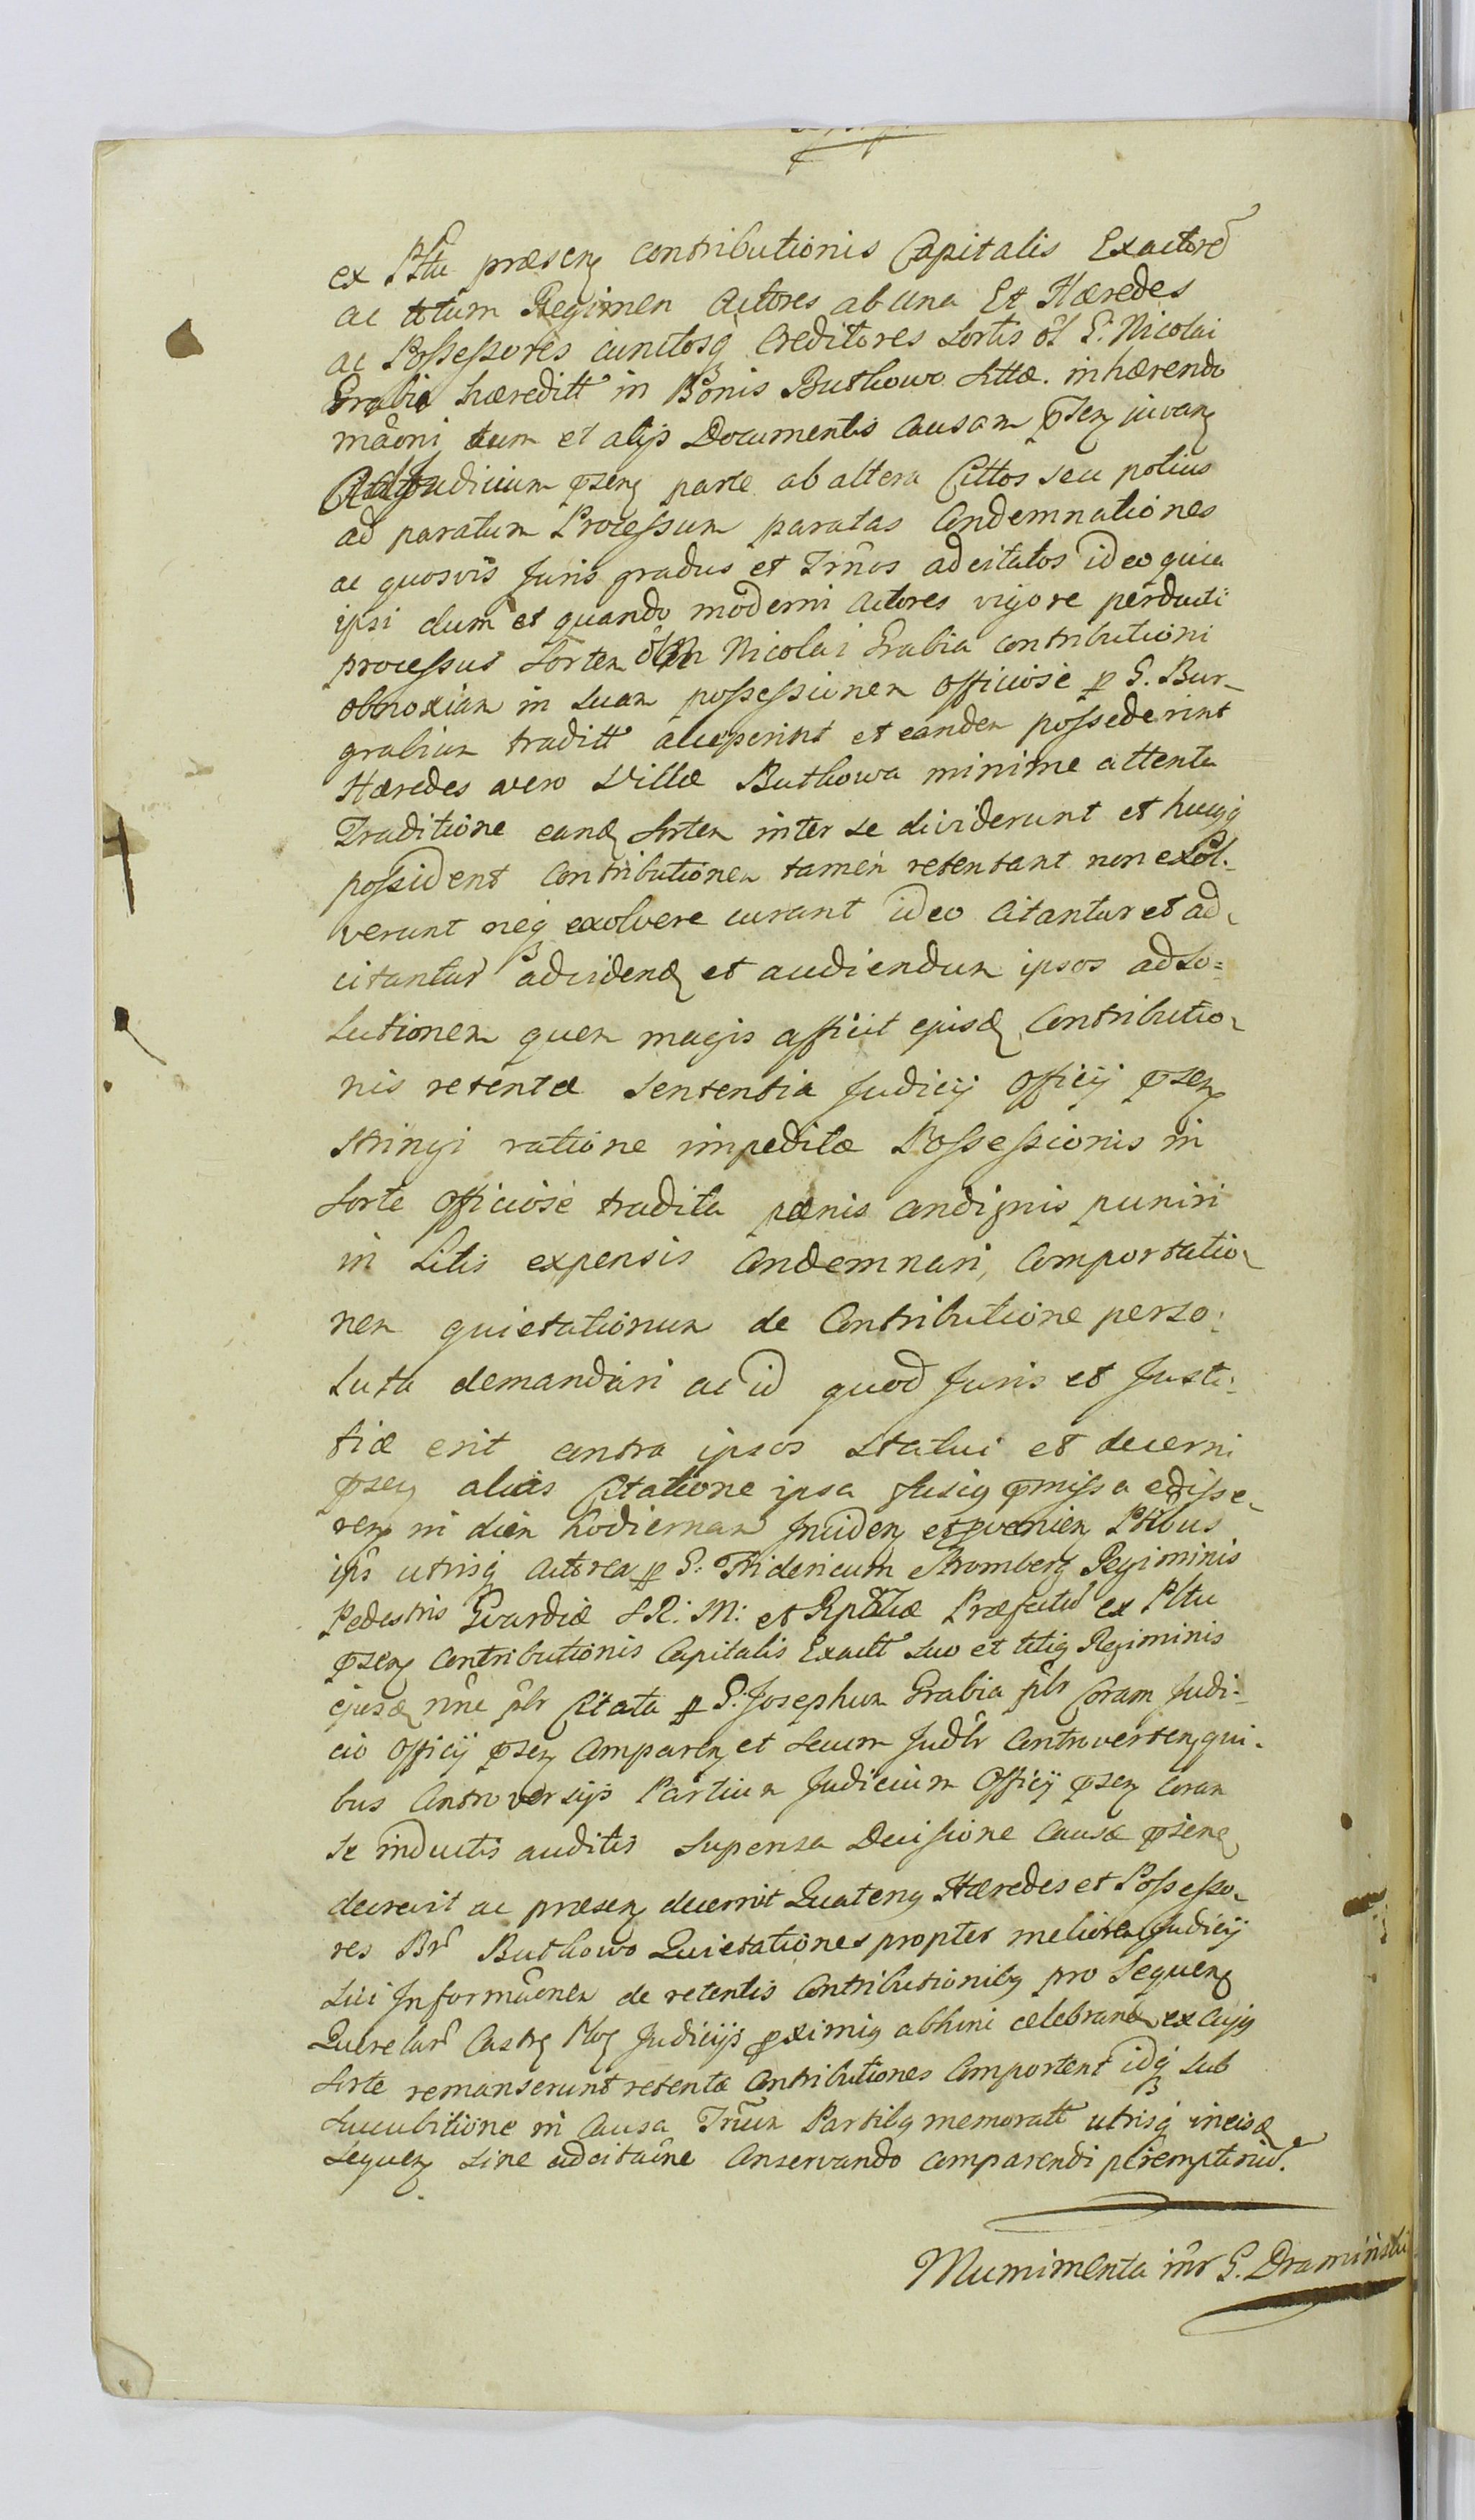 ex Pltu præsen contributionis Capitalis Exactore
ac totum Regimen Actores ab una Et Hæredes
ac Possessores cunctosq Creditores Sortis ol G. Nicolai
Grabia hæreditt in Bonis Buthowo sittæ. inhærendo
mâoni tum et alijs Documentis causam pñsen juvan
Ad Judicium pñsen parte ab altera Cittos seu potius
ad paratum Processum paratas Condemnationes
ac quosvis Juris gradus et Trm̃os adcitatos ideo quia
ipsi dum et quando moderni Actores vigore perducti
processus Sortem olim Nicolai Grabia contributioni
obnoxiam in suam possessionem officiose p G. Bur-
grabium traditt acceperint et eandem possederint
Hæredes vero Villæ Buthowa minime attenta
Traditione eand Sortem inter se diviserunt et hucq
possident Contributionem tamen retentant non exol-
verunt neq exolvere curant ideo Citantur et ad-
citantur ad vidend et audiendum ipsos ad So=
lutionem quem magis afficit ejusd Contributio-
nis retentæ Sententia Judicij Officij pñsen
stringi ratione impeditæ Possessionis in
Sorte officiose tradita pœnis condignis puniri
in Litis expensis Condemnari, Comportatio-
nem quietationum de Contributione perso-
luta demandari ac id quod Juris et Justi-
tiæ erit contra ipsos statui et decerni
pñsen alias Citatione ipsa fusius pmissa edisse-
ren in diem hodiernam Inciden et pvenien Ptibus
ips utrisq Actorea p G: Fridericum Stromberg Regiminis
Pedestris Gvardiæ S R: M: et Rptcæ Præfectu ex Pltu
pñsen Contributionis Capitalis Exactt suo et totius Regiminis
ejusd nñe plr Citata p G: Josephum Grabia plr Coram Judi-
cio Officij pñsen Comparen et secum Judlr Controverten qui-
bus Controversijs Partium Judicium Officij pñsen coram
se inductis auditis suspensa Decisione Causæ pñsen
decrevit ac præsen decernit Quatenus Hæredes et Possesso-
res Br Buthowo Quietationes propter meliorem Judicij
sui Informaônem de retentis Contributionibus pro Sequen
Querelar Castr Judicijs pximis abhinc celebrand ex cujus
Sorte remanserunt retentæ Contributiones Comportent idq sub
Succubitione in Causa Trm̃um Partibus memoratt utrisq incisæ
Sequen sine adcitaône Conservando comparendi peremptoriu.
Munimenta inr G. Dramiński